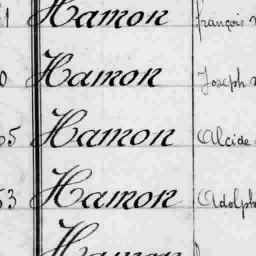 Hamon françois
Hamon Joseph
Hamon Alcide
53 Hamon Adolph
Hamon